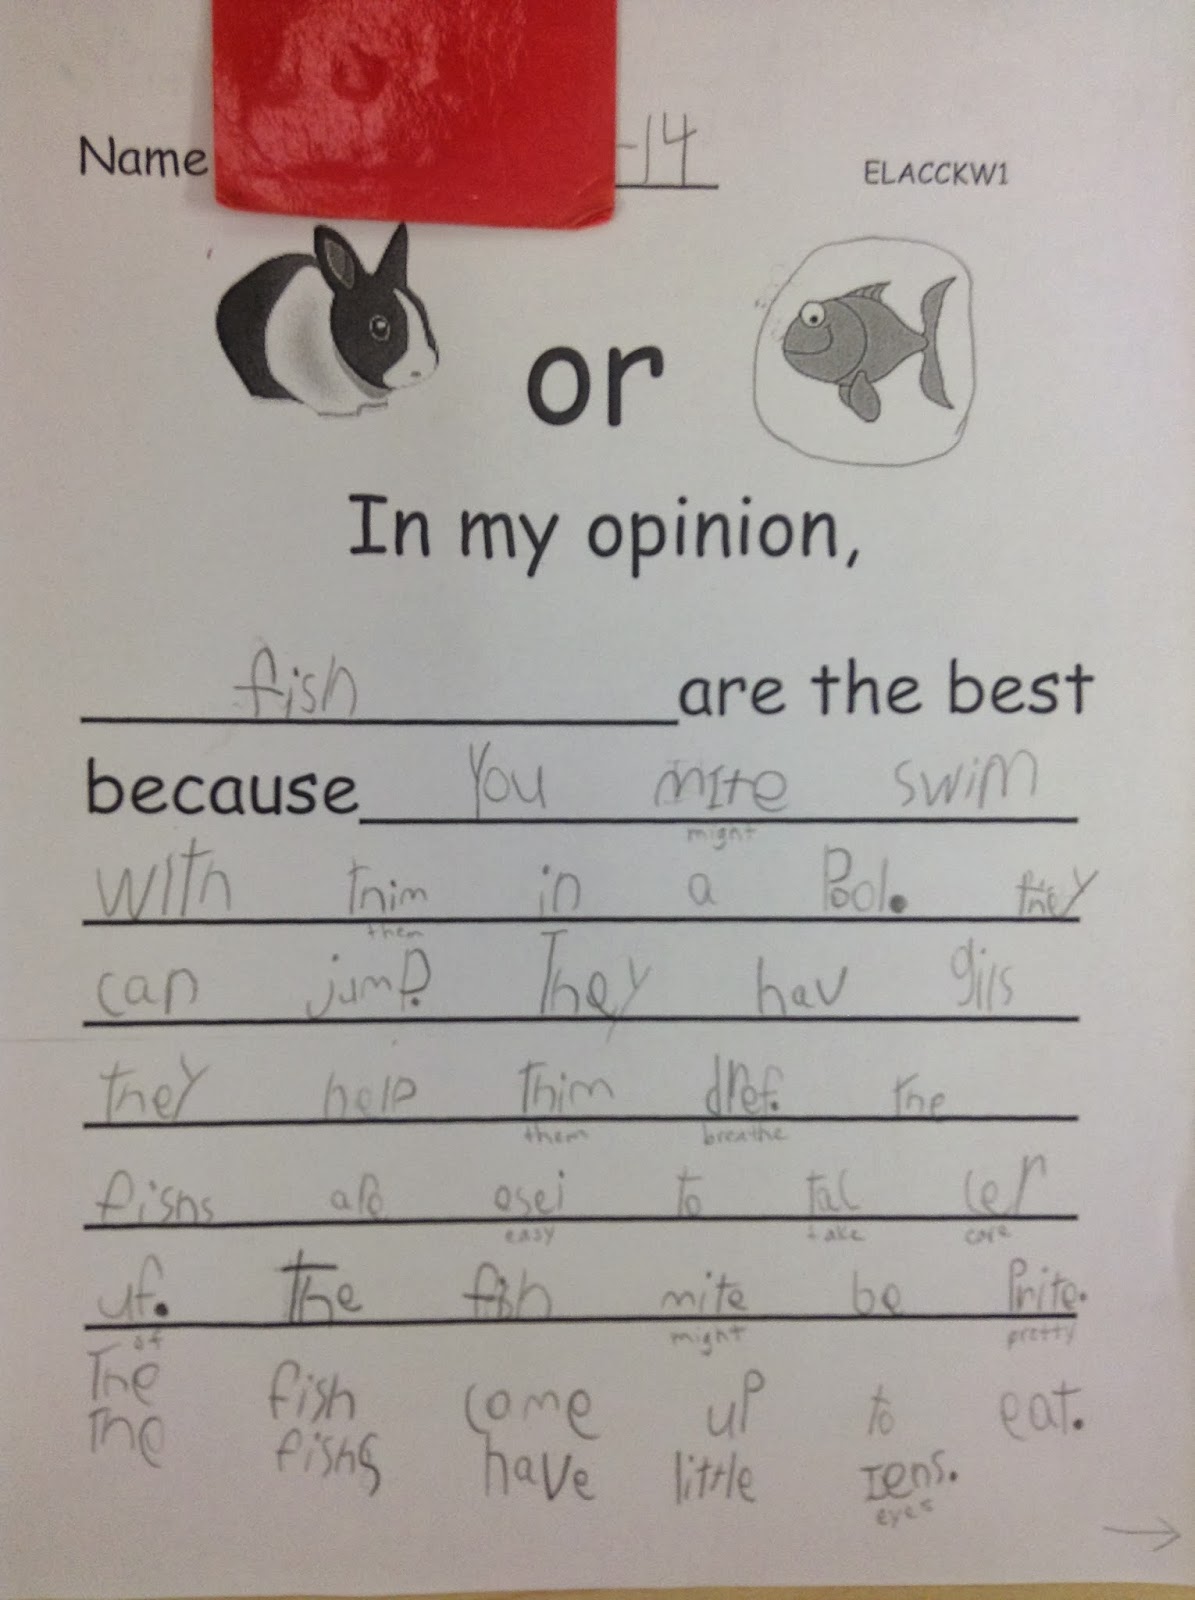 Name -14 ELACCKW1
or
In my opinion,
fish are the best
because You mite swim
might
with thim in a Pool. they
them
can jump. They hav gils
they help thim dref. the
them breathe
fishs are esei to tac cer
easy take care
uf. The fish mite be Prite.
of might pretty
The fish come up to eat.
The fishs have little Iens.
eyes
→